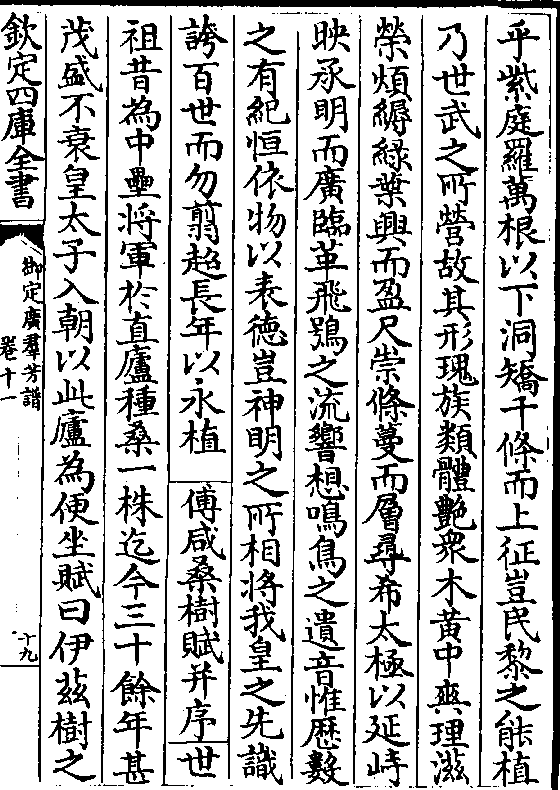 乎紫庭羅萬根以下洞矯千條而上征豈民黎之能植
乃世武之所營故其形瑰族類體艷衆木黃中爽理滋
榮煩縟綠葉興而盈尺崇條蔓而層尋希太極以延峙
映承明而廣臨革飛鴞之流響想鳴鳥之遺音惟歷數
之有紀恒依物以表德豈神明之所相將我皇之先識
誇百世而勿翦超長年以永植 傅咸桑樹賦并序 世
祖昔為中壘將軍於直廬種桑一株迄今三十餘年甚
茂盛不衰皇太子入朝以此廬為便坐賦曰伊茲樹之
欽定四庫全書
御定廣羣芳譜
卷十一
十九